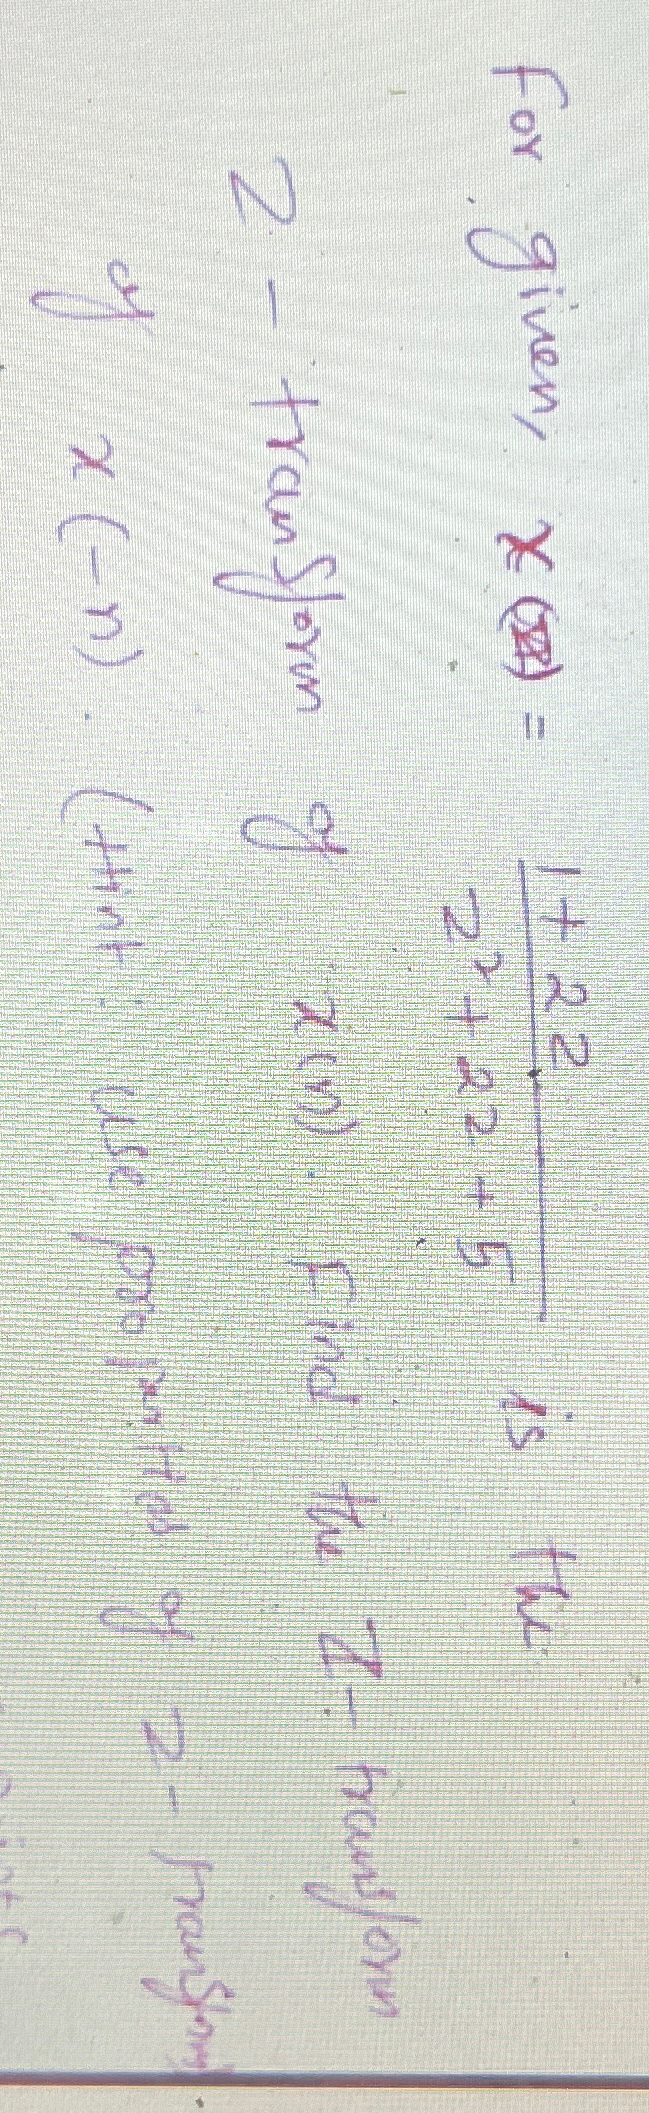 For given, X(Z) = 1 + 2z / z² + 2z + 5 is the
Z - transform of x(n). Find the Z - transform
of x(-n). (Hint: Use properties of Z - transform)